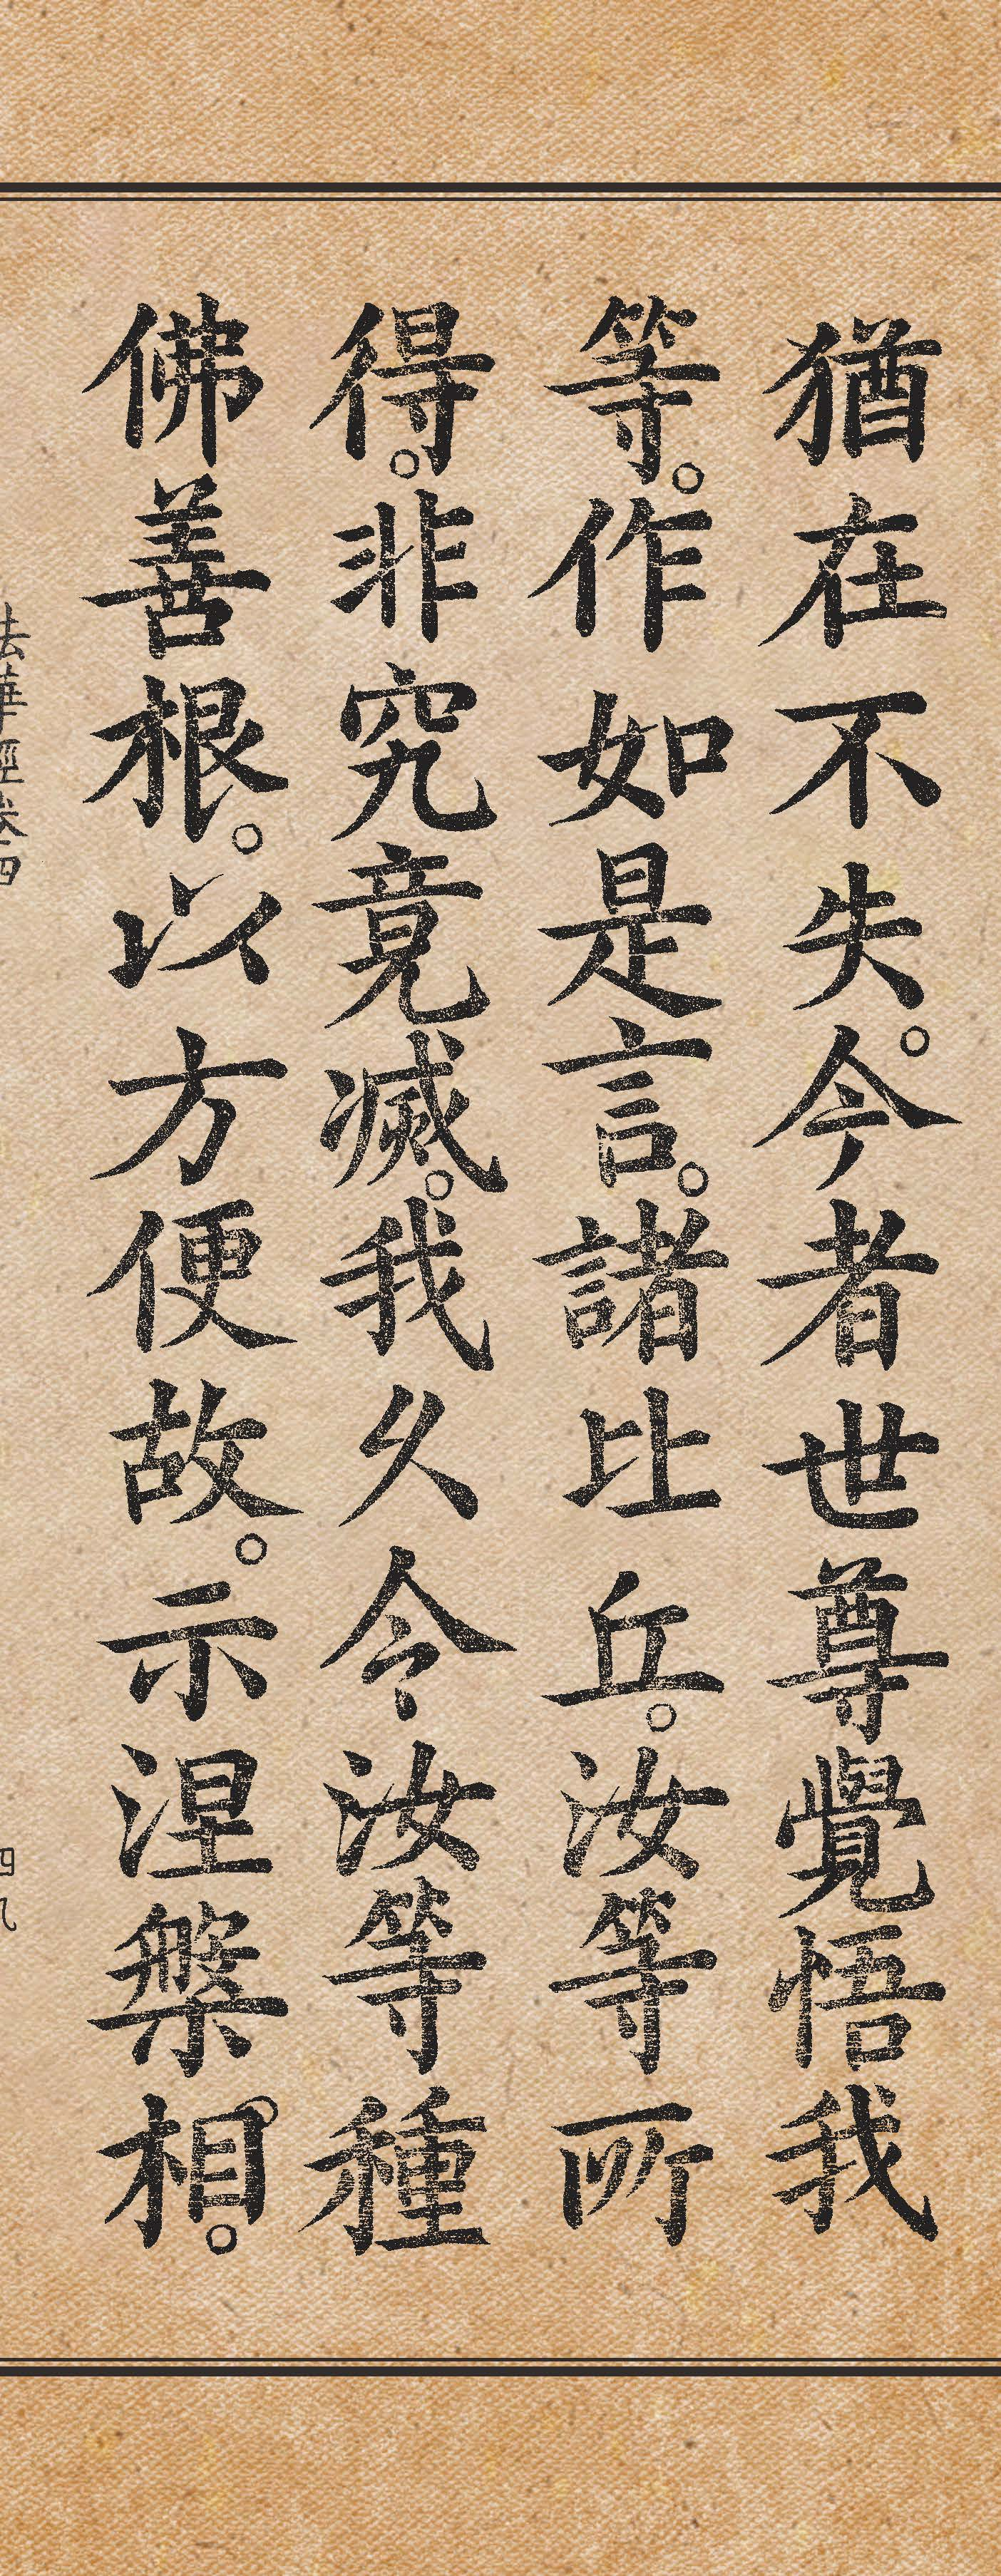 猶在不失。今者世尊覺悟我
等。作如是言。諸比丘。汝等所
得。非究竟滅。我久令汝等種
佛善根。以方便故。示涅槃相。
法華經卷四
四九